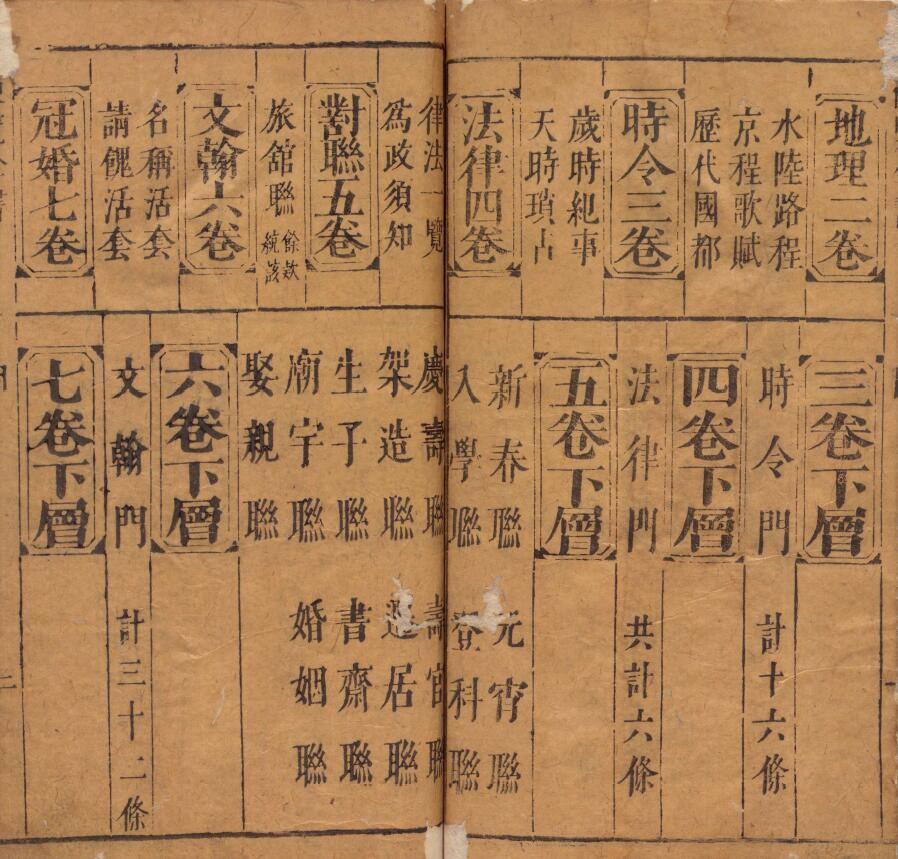 地理二卷
水陸路程
京程歌賦
歷代國都
時令三卷
歲時紀事
天時瑣占
法律四卷
律法一覽
為政須知
對聯五卷
旅舘聯 餘欵統該
文翰六卷
名稱活套
請餽活套
冠婚七卷
三卷下層
時令門 計十六條
四卷下層
法律門 共計六條
五卷下層
新春聯 元宵聯
入學聯 登科聯
慶壽聯 壽官聯
架造聯 遷居聯
生子聯 書齋聯
廟宇聯 婚姻聯
娶親聯
六卷下層
文翰門 計三十二條
七卷下層